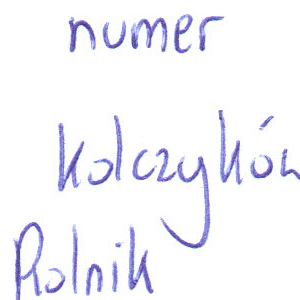 numer
kolczyków
Rolnik